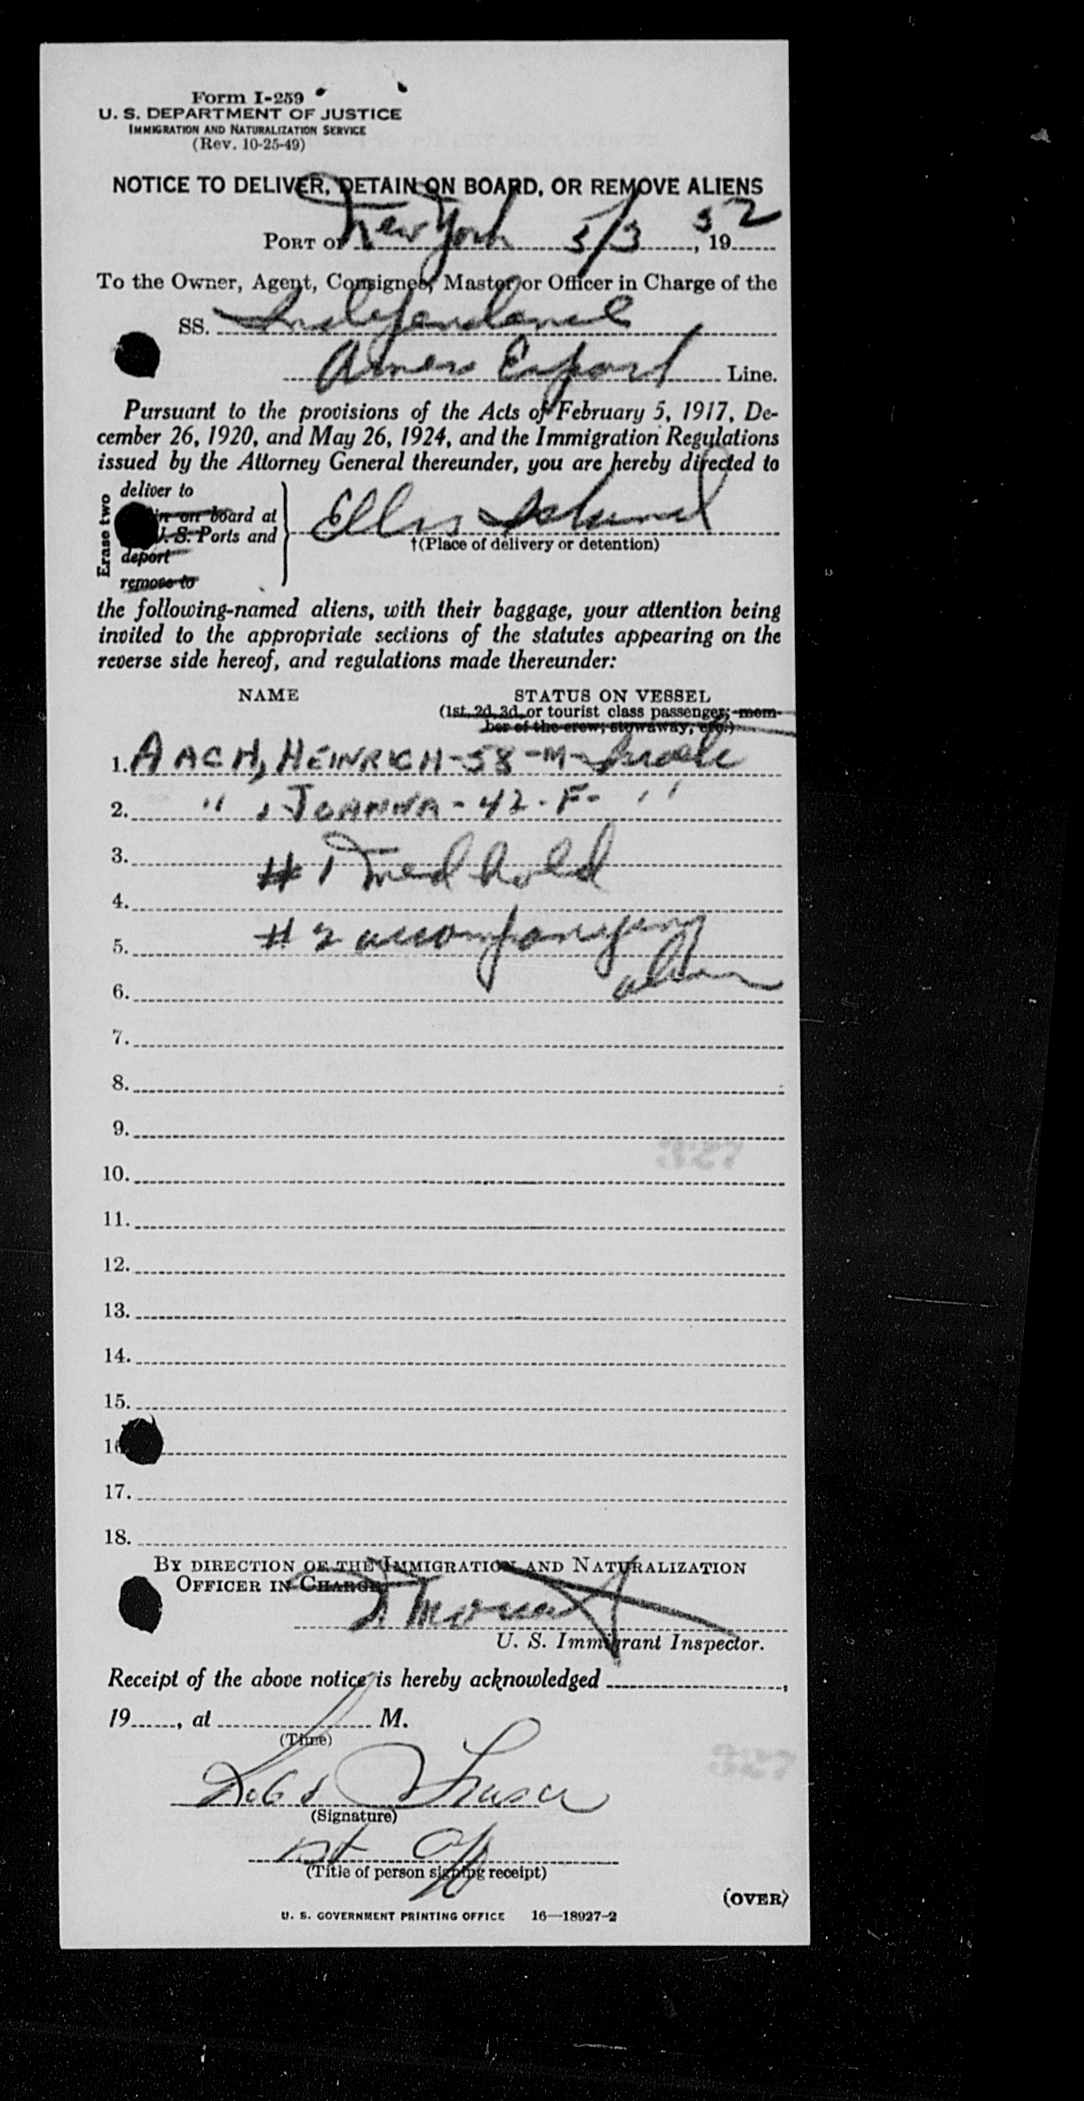 Form I-259
U. S. DEPARTMENT OF JUSTICE
IMMIGRATION AND NATURALIZATION SERVICE
(Rev. 10-25-49)
NOTICE TO DELIVER, DETAIN ON BOARD, OR REMOVE ALIENS
PORT OF New York 5/3, 1952
To the Owner, Agent, Consignee, Master or Officer in Charge of the
SS. Independence
Amer Export Line.
Pursuant to the provisions of the Acts of February 5, 1917, De-
cember 26, 1920, and May 26, 1924, and the Immigration Regulations
issued by the Attorney General thereunder, you are hereby directed to
Erase two
deliver to
on board at
U. S. Ports and
deport
remove to
Ellis Island
†(Place of delivery or detention)
the following-named aliens, with their baggage, your attention being
invited to the appropriate sections of the statutes appearing on the
reverse side hereof, and regulations made thereunder:
NAME STATUS ON VESSEL
(1st, 2d, 3d, or tourist class passenger; mem-
ber of the crew; stowaway, etc.)
1. AACH, HEINRICH-58-M-Israeli
2. " , JOANNA-42-F- "
3. #1 Med hold
4.
5. #2 accompanying
6. alien
7.
8.
9.
327
10.
11.
12.
13.
14.
15.
16
17.
18.
BY DIRECTION OF THE IMMIGRATION AND NATURALIZATION
OFFICER IN CHARGE
U. S. Immigrant Inspector.
Receipt of the above notice is hereby acknowledged ,
19 , at M.
(Time)
327
(Signature)
1st Off
(Title of person signing receipt)
(OVER)
U. S. GOVERNMENT PRINTING OFFICE 16—18927-2